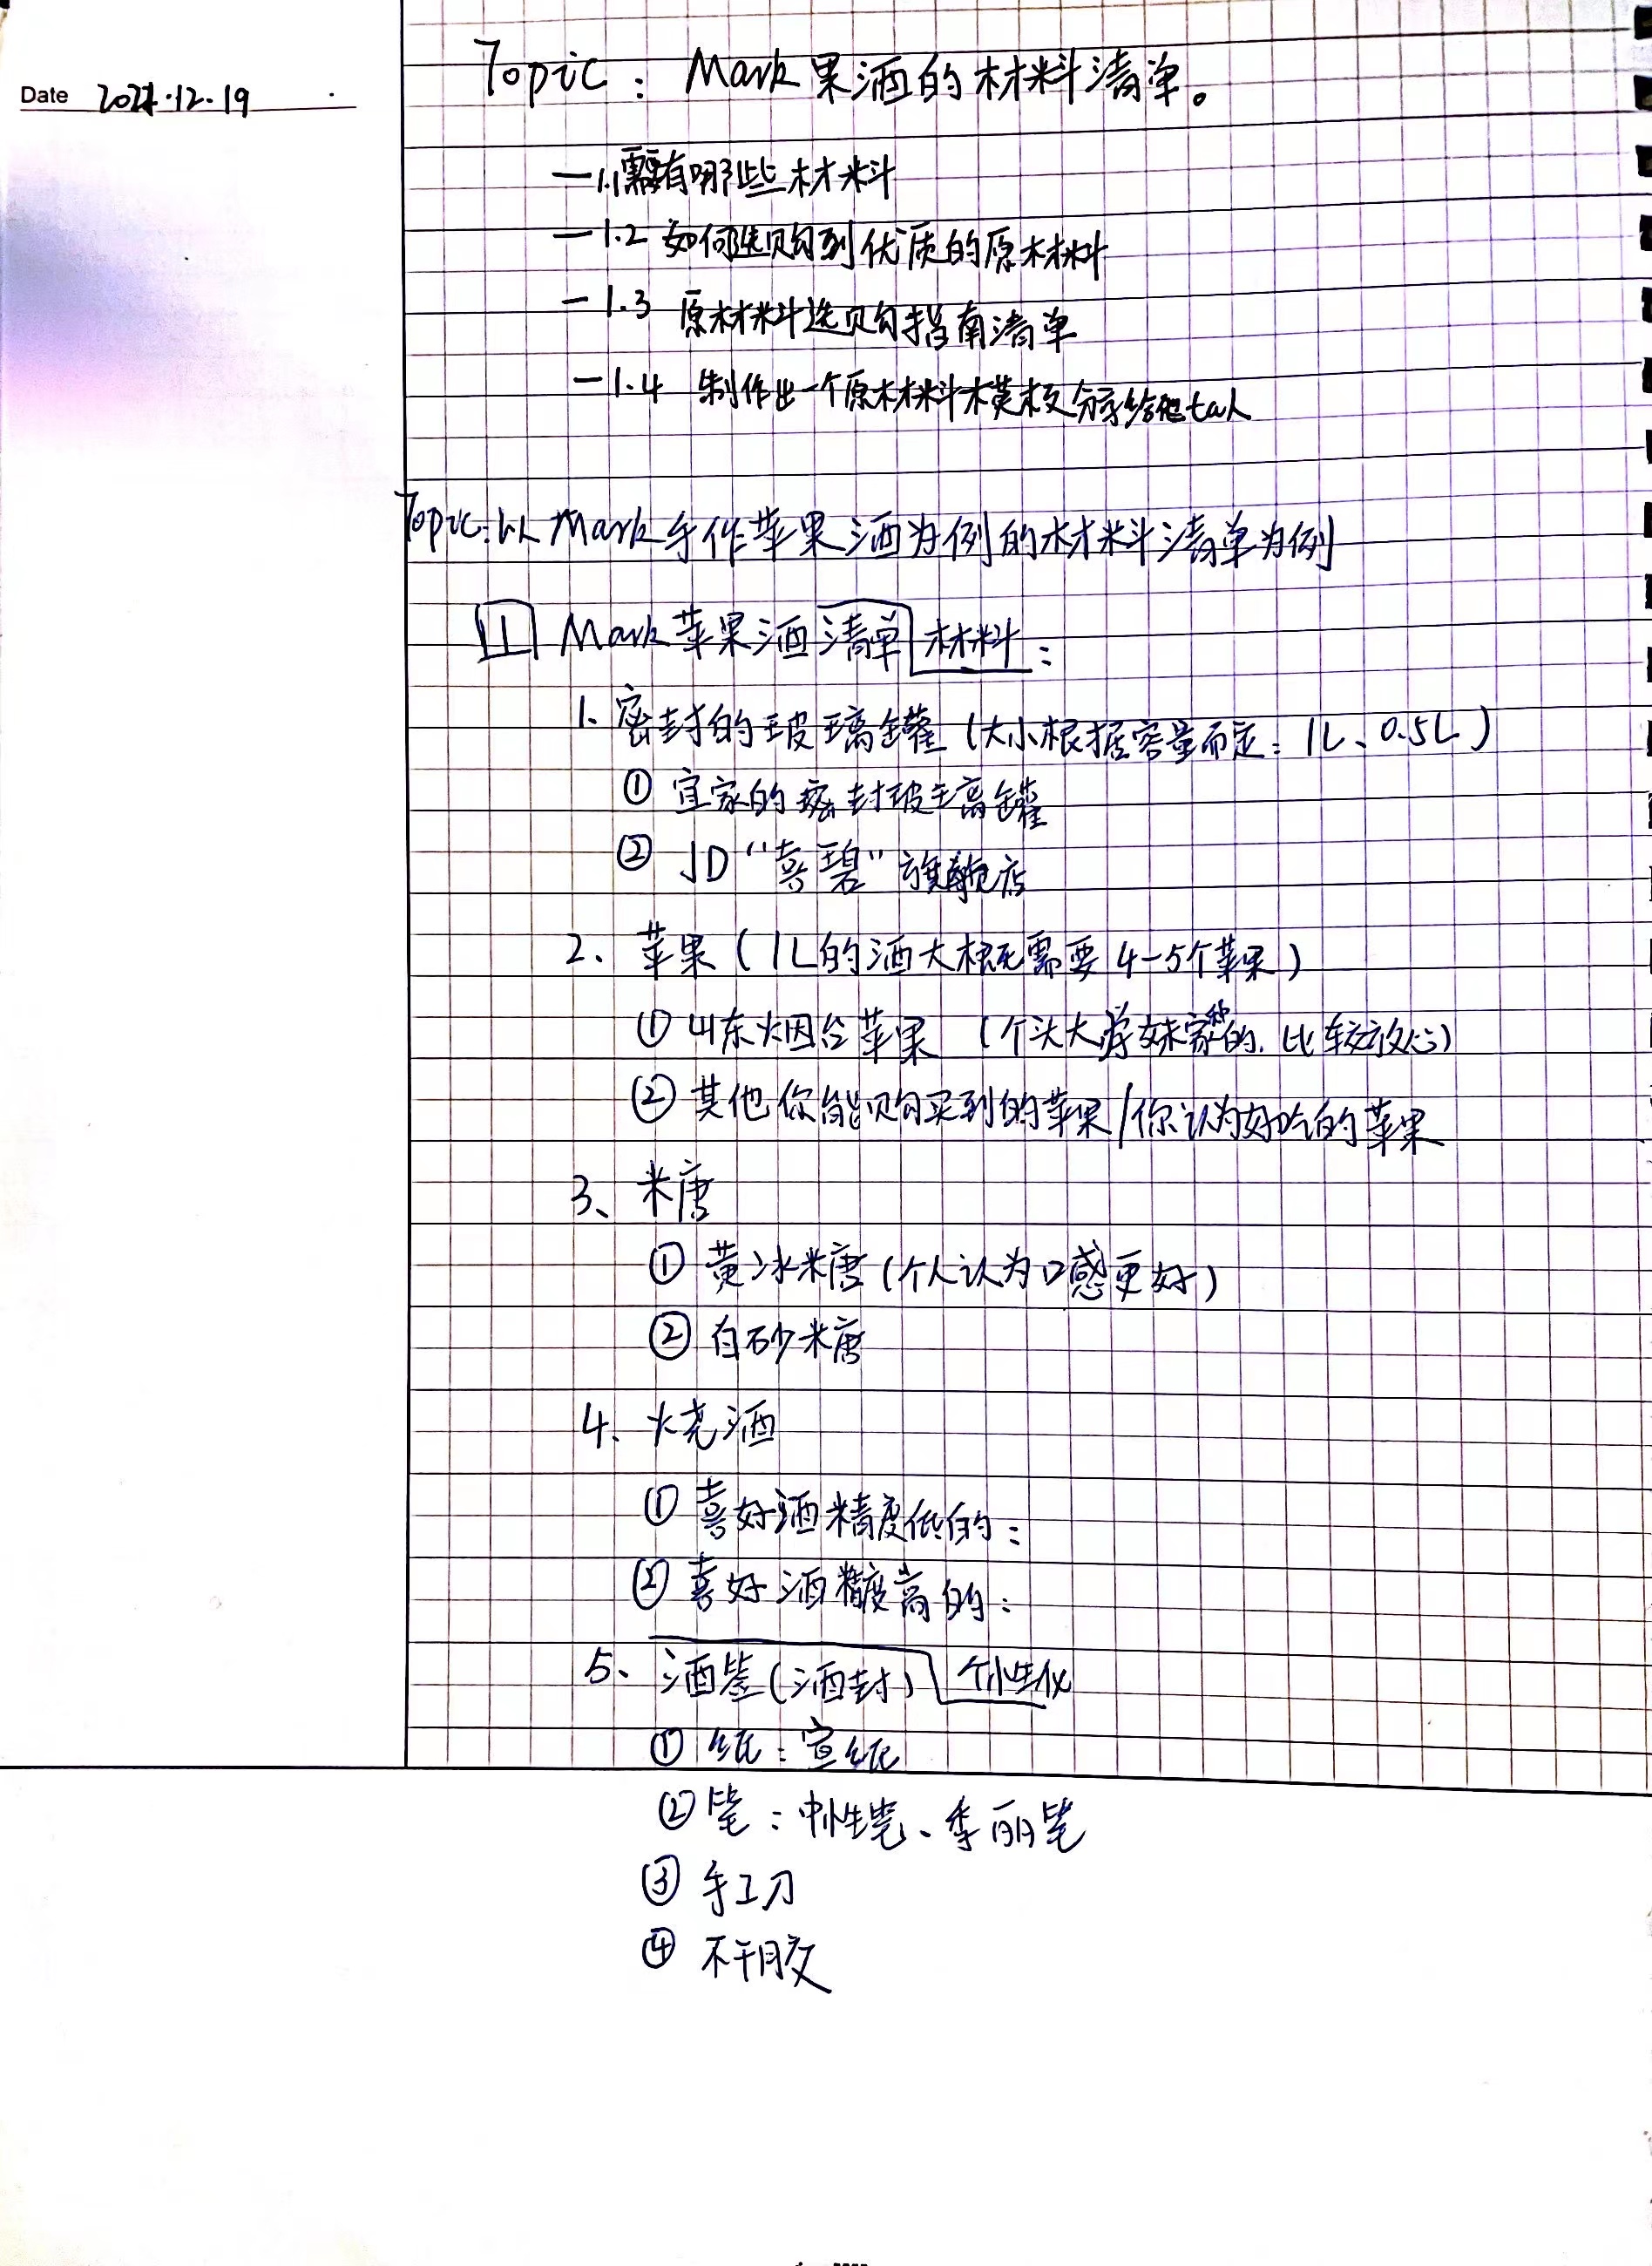 Date 2021.12.19
Topic: Mark果酒的材料清单。
— 1.1需有哪些材料
— 1.2 如何选购到优质的原材料
— 1.3 原材料选购指南清单
— 1.4 制作出一个原材料模板分享给他ta人
Topic:以Mark手作苹果酒为例的材料清单为例
Mark苹果酒清单材料:
1、密封的玻璃罐(大小根据容量而定:1L、0.5L)
① 宜家的密封玻璃罐
② JD“喜碧”旗舰店
2、苹果(1L的酒大概需要4-5个苹果)
① 山东烟台苹果 (个头大学妹家种的.比较放心)
② 其他你能购买到的苹果/你认为好吃的苹果
3、糖
① 黄冰糖(个人认为口感更好)
② 白砂糖
4、烧酒
① 喜好酒精度低的:
② 喜好酒精度高的:
5、酒签(酒封) 个性化
① 纸:宣纸
② 笔:中性笔、秀丽笔
③ 手工刀
④ 不干胶